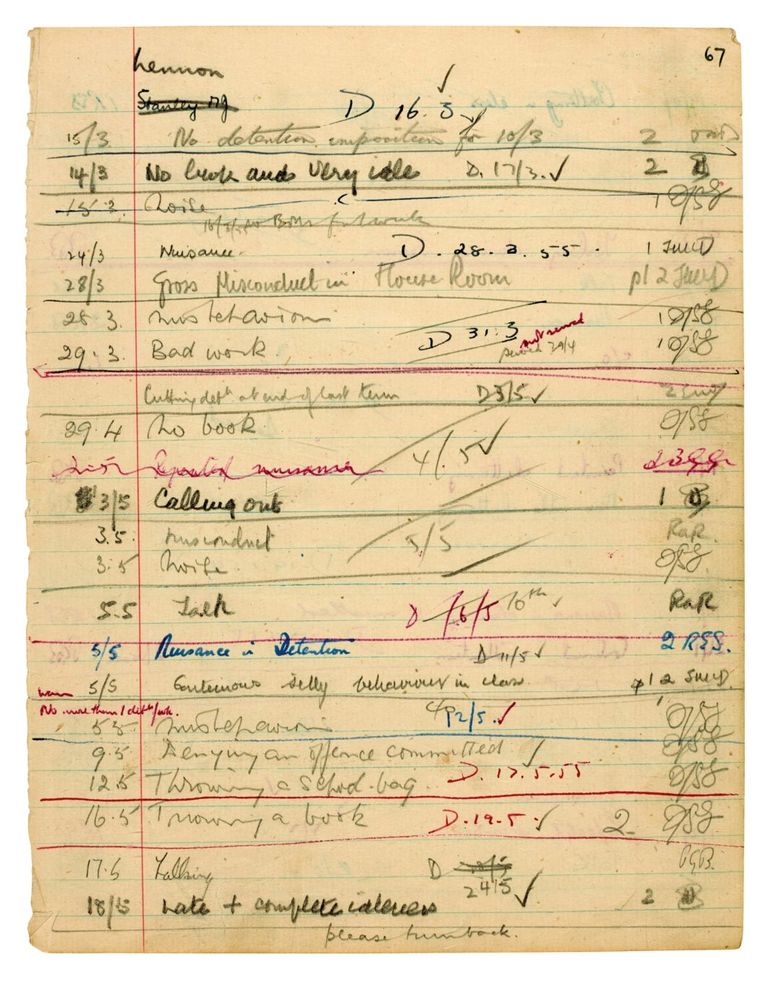 67
Lennon
Stanley Mj D 16.3 ✓
15/3 No detention imposition for 10/3 2
14/3 No book and very idle D. 17/3. ✓ 2
15.3. Noise 1
24/3 Nuisance. D. 28.3.55. 1
28/3 Gross Misconduct in House Room p/ 2
28.3. misbehaviour 1
29.3. Bad work D 31.3 not served served 29/4 1
Cutting detn at end of last term D 3/5 ✓ 2
29.4 No book
Repeated nuisance 4/5 ✓ 2
3/5 Calling out 1
3.5. misconduct 5/5 RaR.
3.5 Noise
5.5 Talk D 6/5 10th ✓ RaR
5/5 Nuisance in Detention D 11/5 ✓ 2 RGS.
5/5 Continuous silly behaviour in class. p/ 2
No more than 1 detn/wk.
5.5 misbehaviour 12/5. ✓
9.5 Denying an offence committed ✓
12.5 Throwing a school-bag D. 17.5.55
16.5 Throwing a book D. 19.5. ✓ 2
17.5 Talking D 24/5 ✓ PGB.
18/5 Late + complete idleness 2
please turn back.